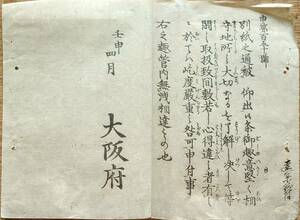 別紙之通被　仰出候条御趣意堅く相
守地所ハ大切なるを了解決して等
閑ニ取扱致間敷若し心得違之者有之
ニ於てハ屹度厳重ニ咎可申付事
右之趣管内無洩相達るもの也
壬申四月
大阪府